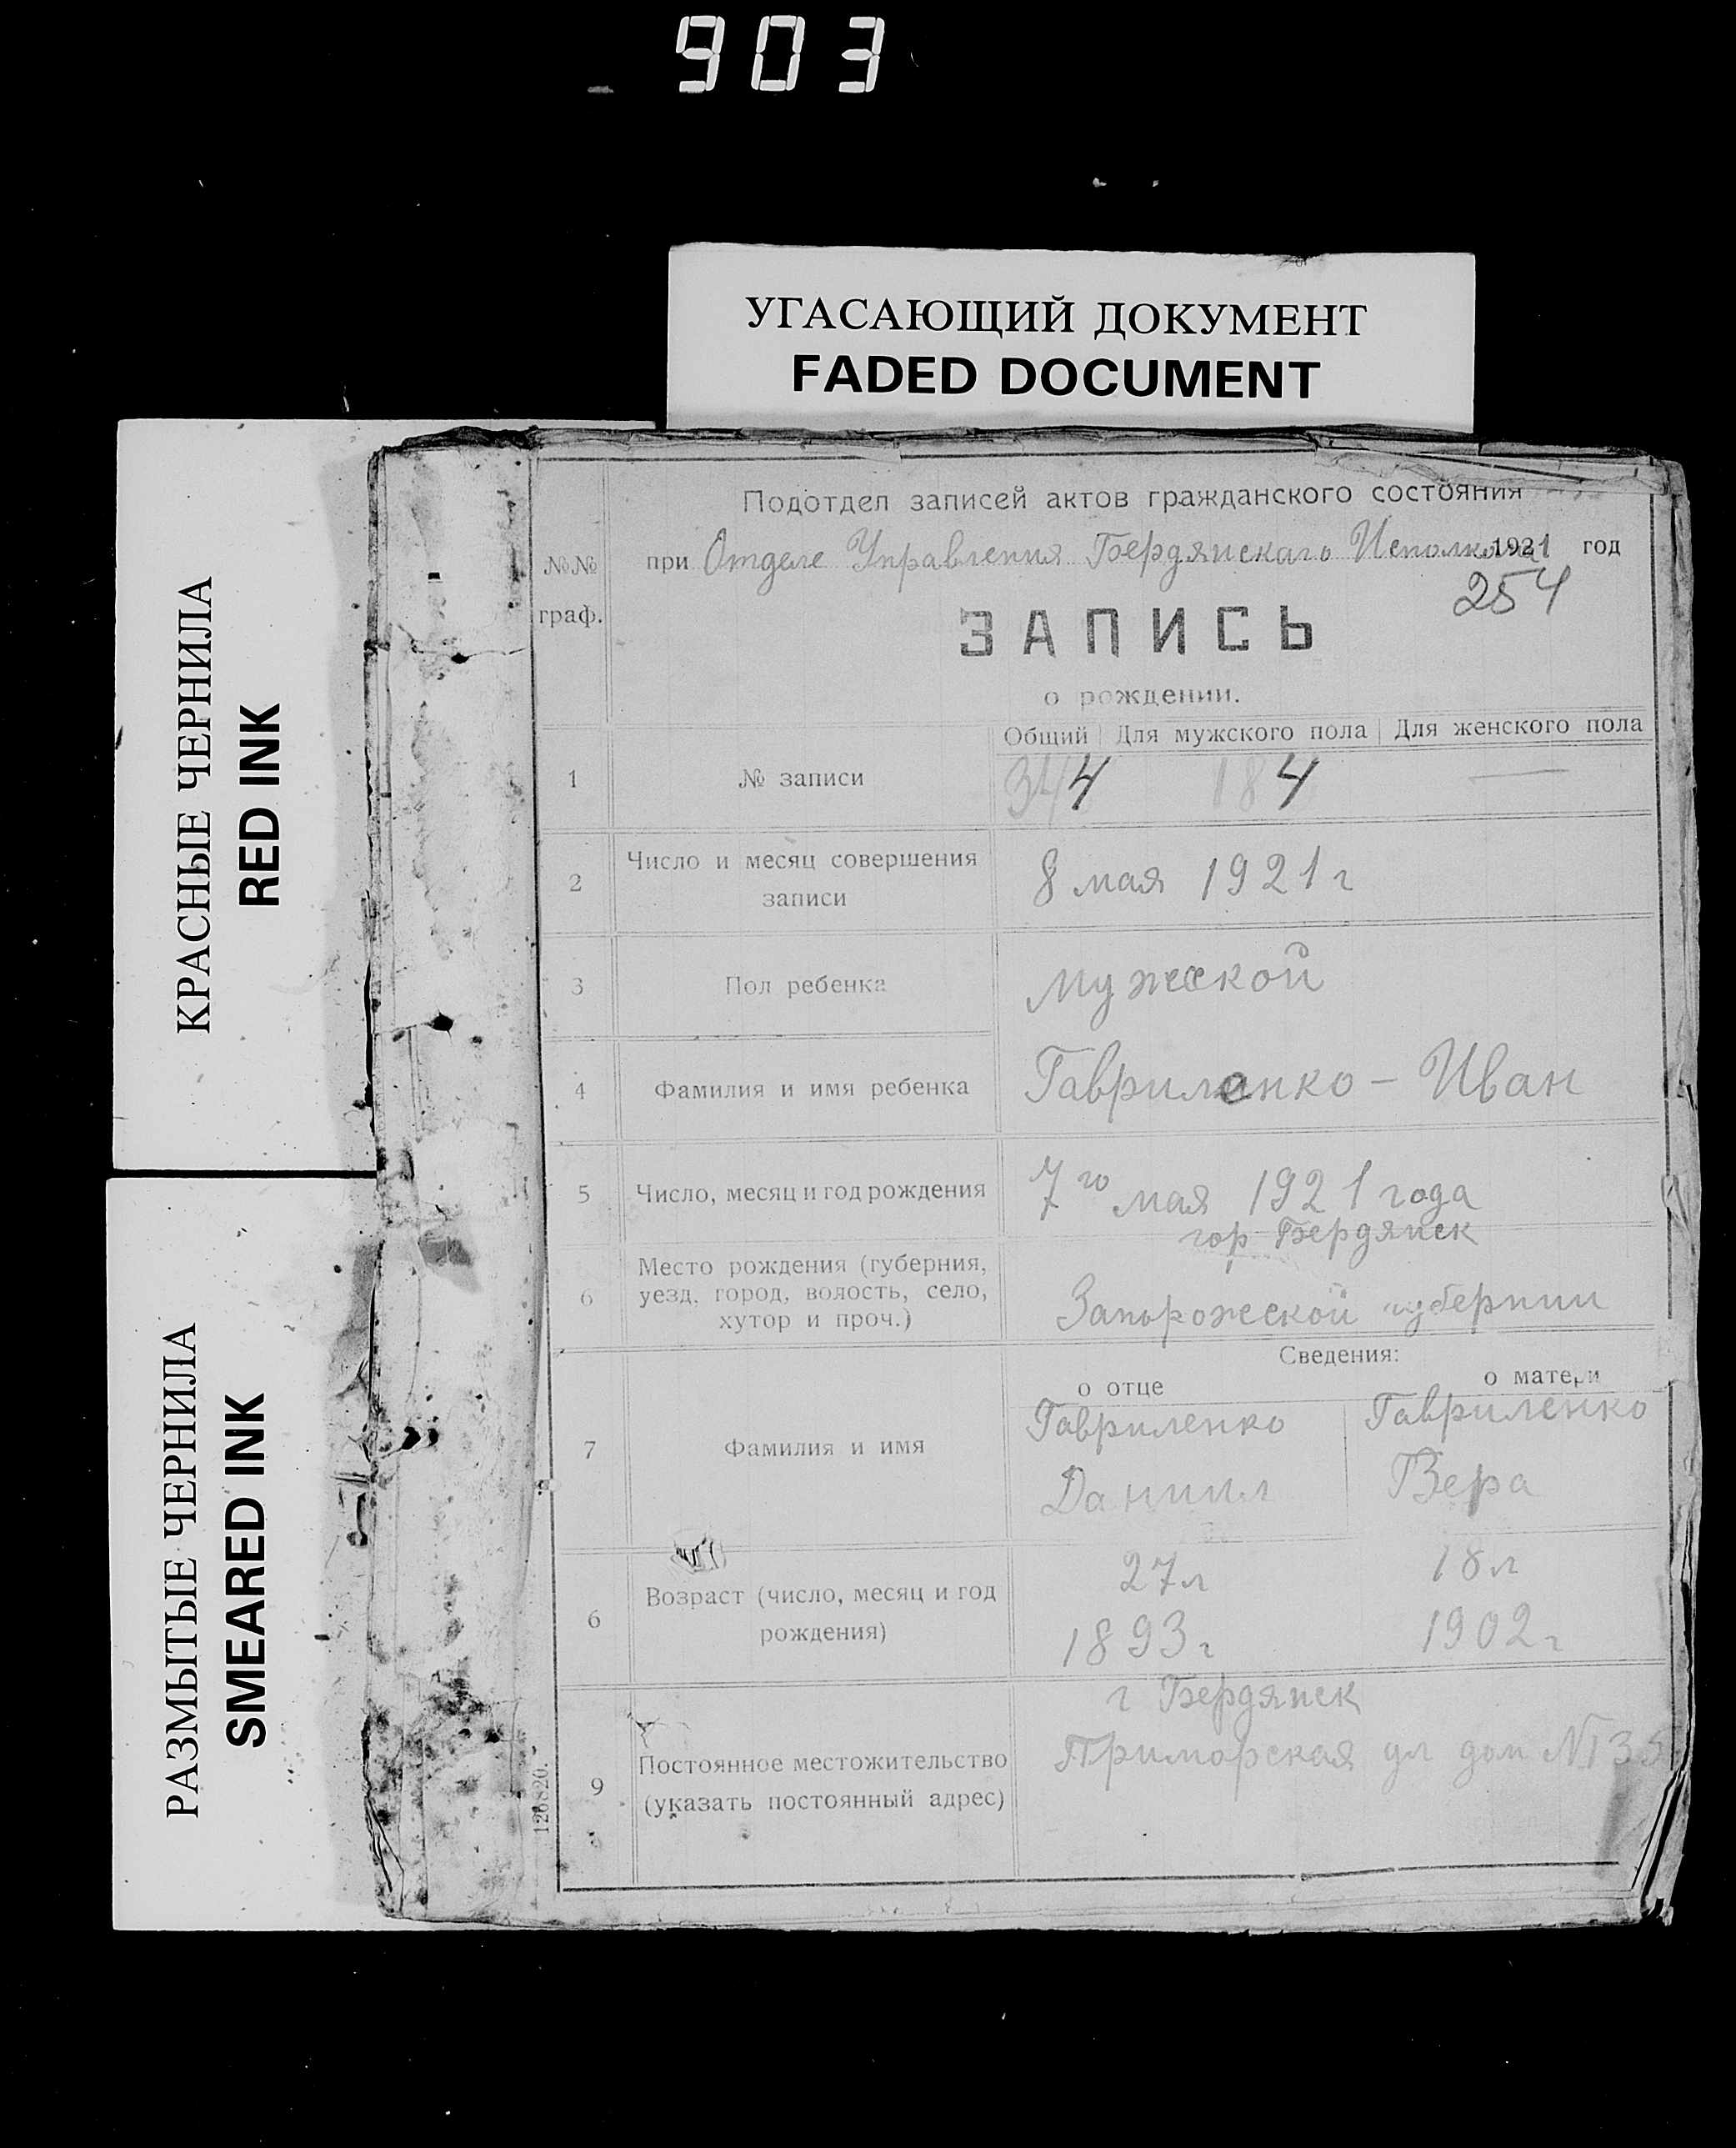 903
УГАСАЮЩИЙ ДОКУМЕНТ
FADED DOCUMENT
КРАСНЫЕ ЧЕРНИЛА
RED INK
РАЗМЫТЫЕ ЧЕРНИЛА
SMEARED INK
Подотдел записей актов гражданского состояния
№№ граф.
при Отделе Управления Бердянскаго Исполкома 1921 год
254
ЗАПИСЬ
о рождении.
Общий Для мужского пола Для женского пола
1 № записи 344 184 —
2 Число и месяц совершения записи 8 мая 1921 г
3 Пол ребенка мужской
4 Фамилия и имя ребенка Гавриленко - Иван
5 Число, месяц и год рождения 7го мая 1921 года
гор Бердянск
6 Место рождения (губерния,
уезд, город, волость, село,
хутор и проч.) Запорожской губернии
Сведения:
о отце о матери
Гавриленко Гавриленко
7 Фамилия и имя
Даниил Вера
27л 18л
6 Возраст (число, месяц и год
рождения) 1893г 1902г
г Бердянск
9 Постоянное местожительство Приморская ул дом №135
(указать постоянный адрес)
126820.